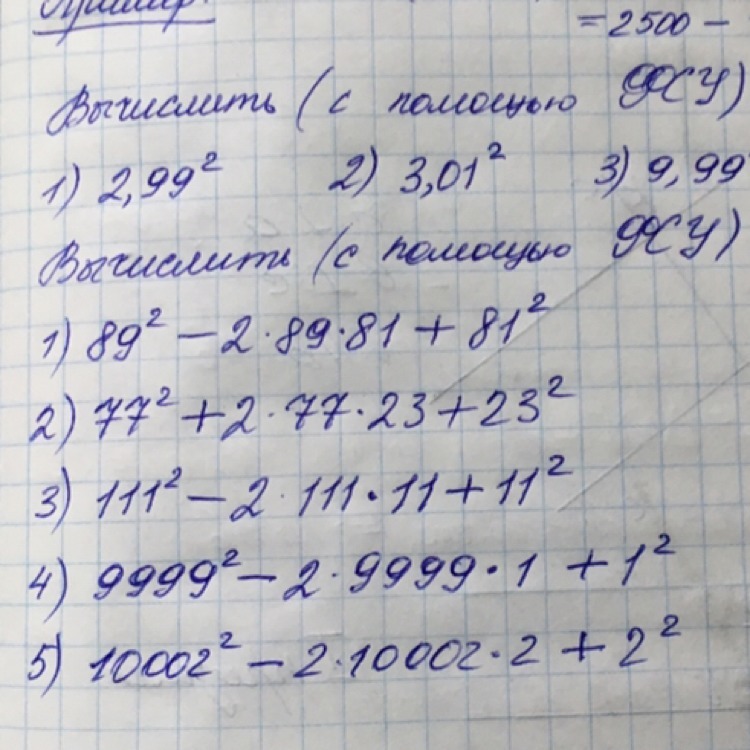 Пример.
= 2500 –
Вычислить (с помощью ФСУ)
1) 2,99² 2) 3,01² 3) 9,99²
Вычислить (с помощью ФСУ)
1) 89² – 2·89·81 + 81²
2) 77² + 2·77·23 + 23²
3) 111² – 2·111·11 + 11²
4) 9999² – 2·9999·1 + 1²
5) 10002² – 2·10002·2 + 2²